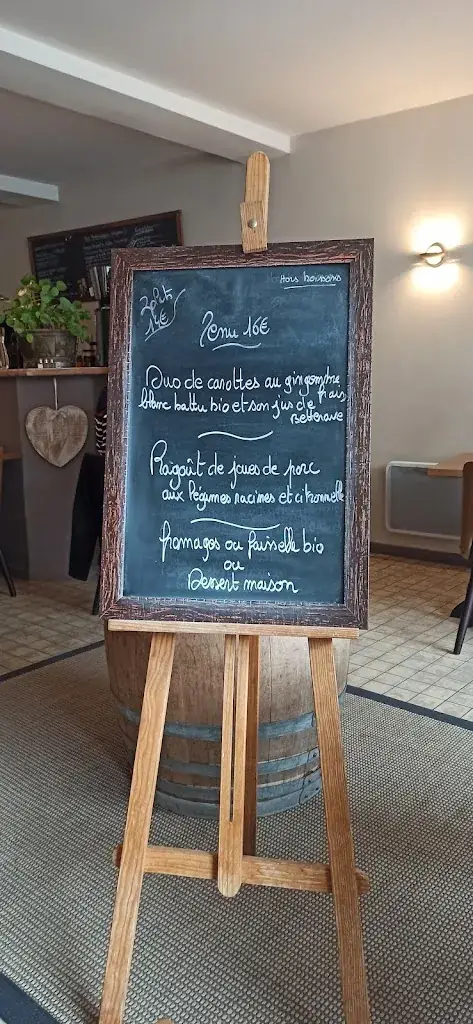 Hors boissons
Plat
14€
Menu 16€
Duo de carottes au gingembre
blanc battu bio et son jus de frais
Betterave
Ragoût de joues de porc
aux légumes racines et citronnelle
fromages ou faisselle bio
ou
Dessert maison